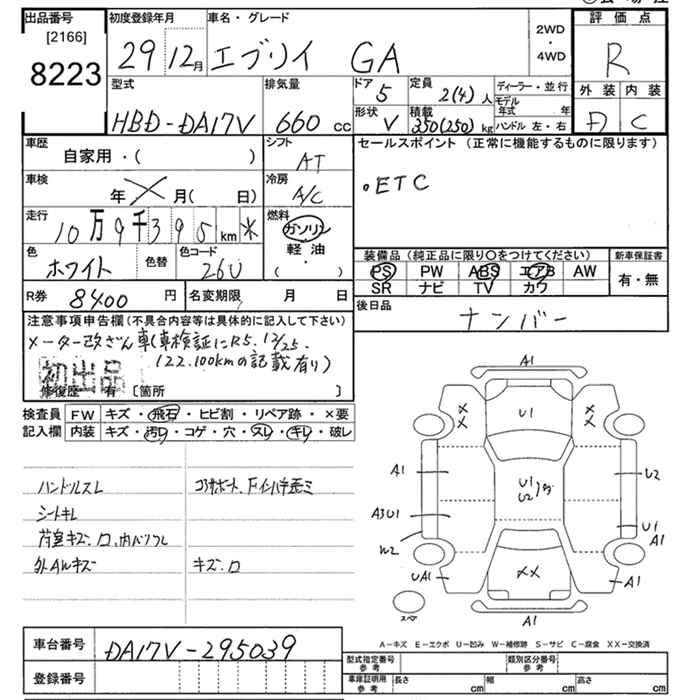 出品番号
[2166]
8223
初度登録年月
29 12月
車名・グレード
エブリイ GA
2WD
・
4WD
評価点
R
外装 内装
D C
型式
HBD-DA17V
排気量
660 cc
ドア
5
定員
2(4)人
形状
V
積載
350(250)kg
ディーラー・並行
モデル年式 年
ハンドル 左・右
車歴
自家用・( )
シフト
AT
車検
年 × 月( 日)
冷房
A/C
走行
10万9千395km *
燃料
ガソリン
軽油
( ・ )
色
ホワイト
色替
色コード
26U
R券 8400 円
名変期限 月 日
セールスポイント (正常に機能するものに限ります)
。ETC
装備品 (純正品に限り○をつけてください)
PS PW ABS エアB AW
SR ナビ TV カワ
新車保証書
有・無
後日品
ナンバー
注意事項申告欄 (不具合内容等は具体的に記入して下さい)
メーター改ざん車(車検証にR5.12/25.
122.100kmの記載有り)
初出品
修復歴 有 [箇所 ]
検査員 FW キズ・飛石・ヒビ割・リペア跡・×要
記入欄 内装 キズ・汚れ・コゲ・穴・スレ・キレ・破レ
ハンドルスレ
シートキレ
荷室キズ、凹、内バリスレ
外AWキズ
コアサポート、Fインパネ歪ミ
キズ、凹
A1
U1
XX
XX
A1
U2
U1
U2
A3U1
U1
A1
W2
UA1
XX
A1
スペア
A1
A−キズ E−エクボ U−凹み W−補修跡 S−サビ C−腐食 XX−交換済
車台番号 DA17V-295039
登録番号
型式指定番号 参考
類別区分番号 参考
車庫証明用 参考 長さ cm 幅 cm 高さ cm